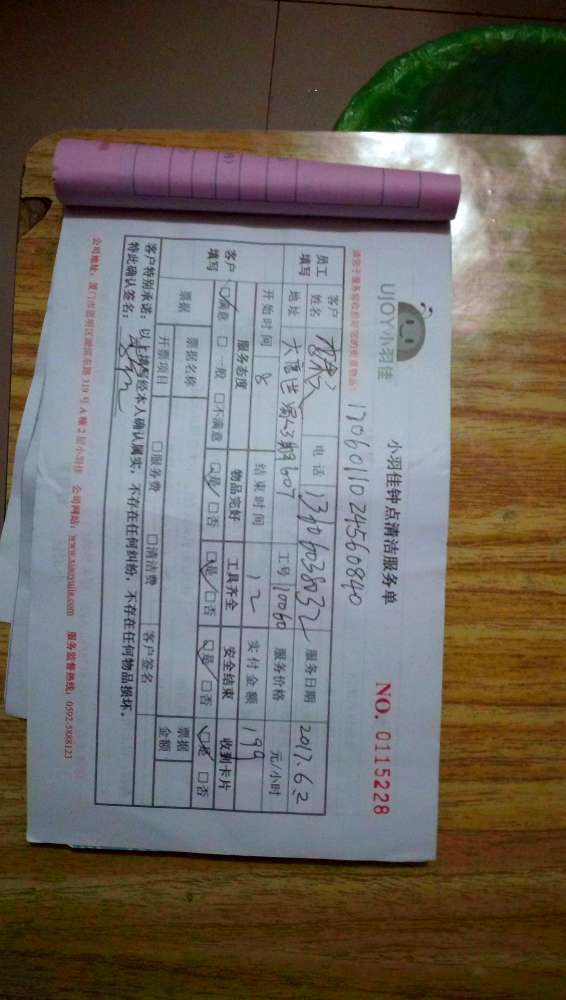 UJOY小羽佳
小羽佳钟点清洁服务单
NO. 0115228
1706011024560840
请您于服务前收拾好您的贵重物品！
员工填写 客户姓名 电话 13906038032 服务日期 2017.6.2
地址 607 工号 10060 服务价格 元/小时
开始时间 8 结束时间 12 实付金额 199
客户填写 服务态度 物品完好 工具齐全 安全结束 收到卡片
☑满意 □一般 □不满意 ☑是 □否 ☑是 □否 ☑是 □否 ☑是 □否
票据 票据名称 票据金额
开票项目 □服务费 □清洁费 客户签名
客户特别承诺：以上填写经本人确认属实，不存在任何纠纷，不存在任何物品损坏。
特此确认签名：
公司地址：厦门市思明区湖滨东路 319 号 A 幢 2 层小羽佳 公司网站：www.xiaoyujia.com 服务监督热线：0592-5888123